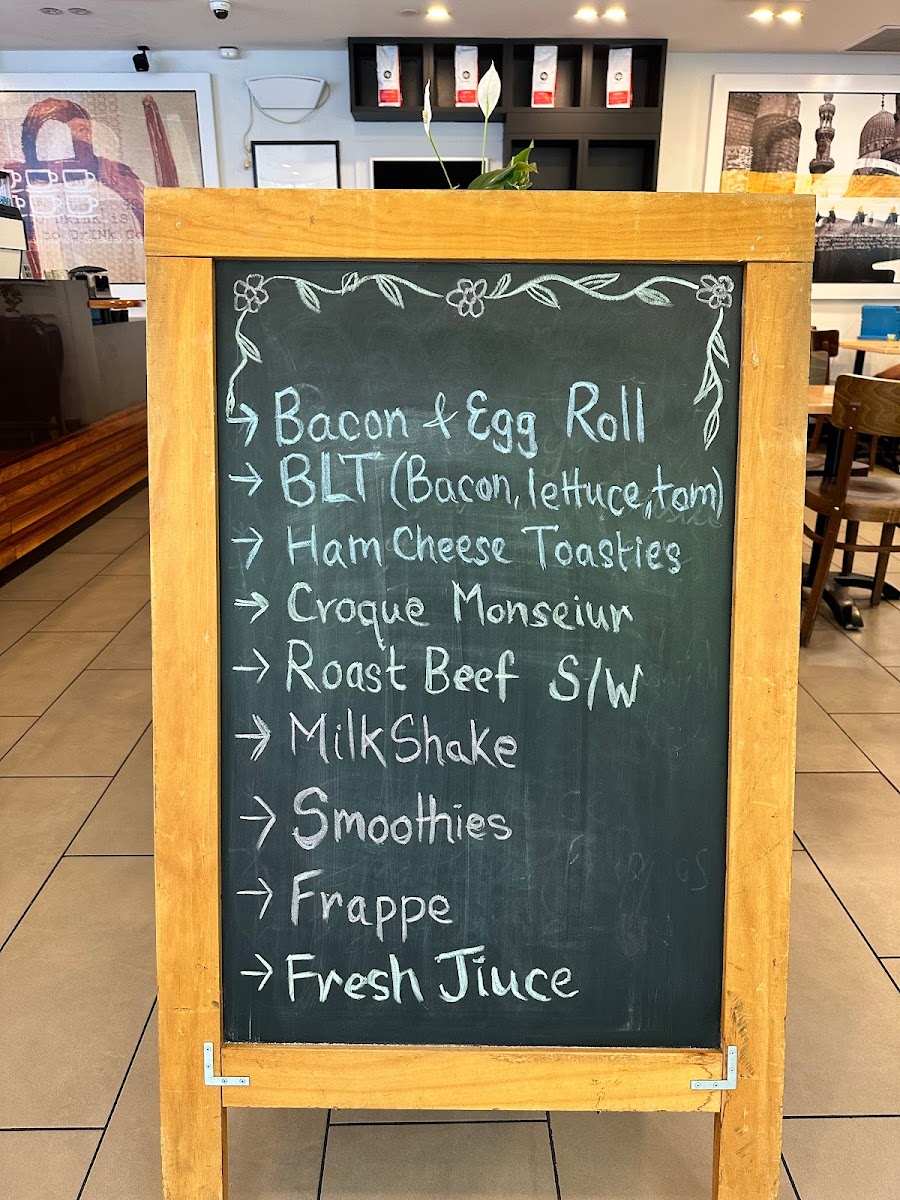 → Bacon & Egg Roll
→ BLT (Bacon, lettuce, tom)
→ Ham Cheese Toasties
→ Croque Monseiur
→ Roast Beef S/W
→ MilkShake
→ Smoothies
→ Frappe
→ Fresh Jiuce